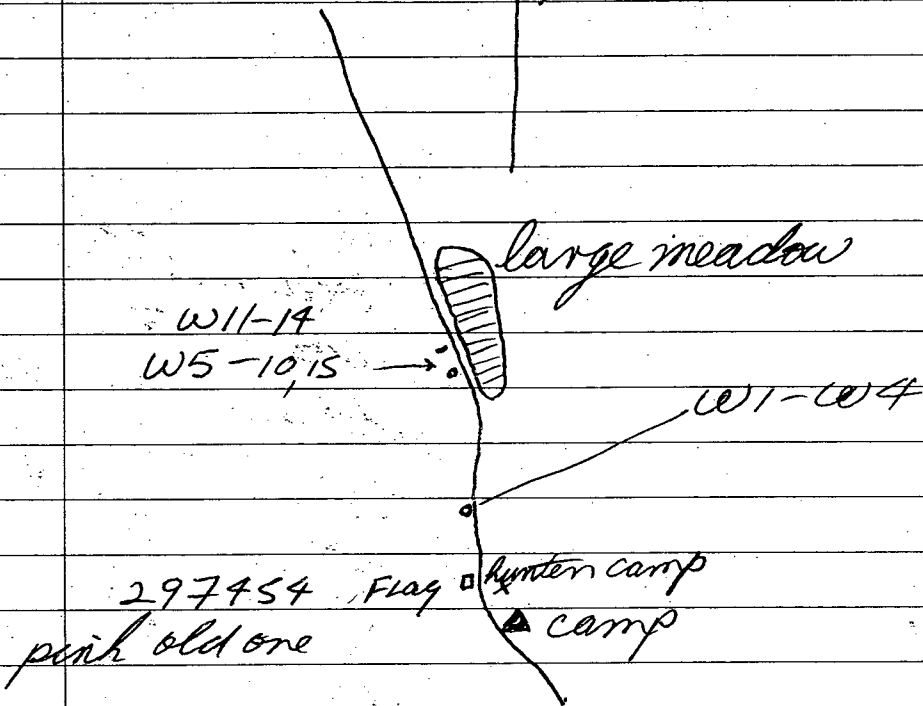 large meadow
W11-14
W5-10,15
W1-W4
297454 Flag hunter camp
camp
pink old one